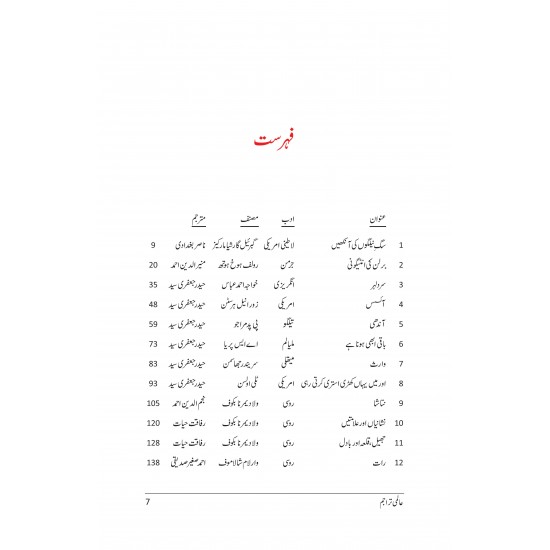 فہرست
عنوان ادب مصنف مترجم
1 سگِ نیلگوں کی آنکھیں لاطینی امریکی گبرئیل گارشیا مارکیز ناصر بغدادی 9
2 برلن کی انٹیگونی جرمن رولف ہوخ ہوتھ منیر الدین احمد 20
3 سردلہر انگریزی خواجہ احمد عباس حیدر جعفری سید 35
4 آئسس امریکی زورا نیل ہرسٹن حیدر جعفری سید 48
5 آندھی تیلگو پی پدمراجو حیدر جعفری سید 59
6 باقی ابھی ہونا ہے ملیالم اے ایس پریا حیدر جعفری سید 73
7 وارث میتھلی سریندر جھا سمن حیدر جعفری سید 83
8 اور میں یہاں کھڑی استری کرتی رہی امریکی ٹلی اولسن حیدر جعفری سید 93
9 نتاشا روسی ولادیمر نابکوف نجم الدین احمد 105
10 نشانیاں اور علامتیں روسی ولادیمر نابکوف رفاقت حیات 120
11 جھیل، قلعہ اور بادل روسی ولادیمر نابکوف رفاقت حیات 128
12 رات روسی وارلام شالاموف احمد صغیر صدیقی 138
عالمی تراجم 7